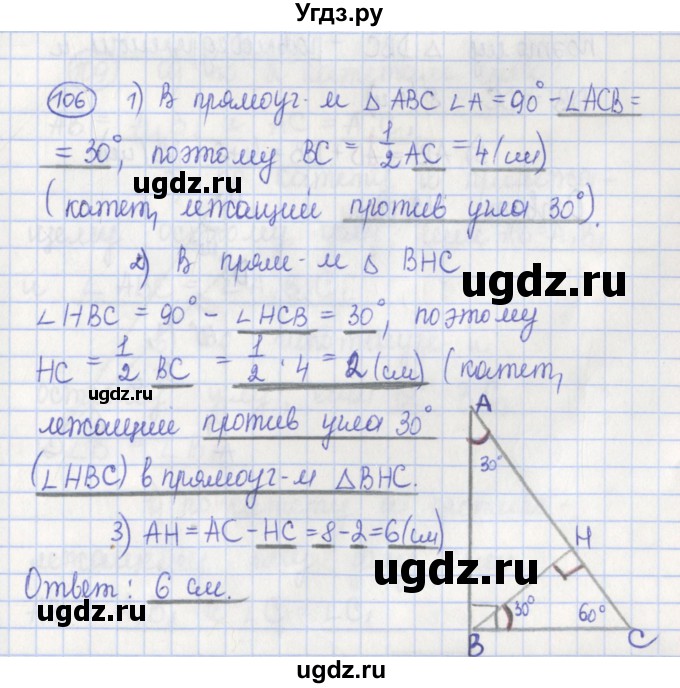 Угдз.ру
106 1) В прямоуг-м △ ABC ∠A = 90° - ∠ACB =
= 30°, поэтому BC = 1/2 AC = 4 (см)
ugdz.ru
(катет, лежащий против угла 30°).
2) В прям-м △ BHC
ugdz.ru
∠HBC = 90° - ∠HCB = 30°, поэтому
HC = 1/2 BC = 1/2 · 4 = 2 (см) (катет,
ugdz.ru
лежащий против угла 30°
(∠HBC) в прямоуг-м △BHC.
3) AH = AC - HC = 8 - 2 = 6 (см)
ugdz.ru
Ответ: 6 см.
ugdz.ru
A
30°
H
30°
60°
B
C
ugdz.ru